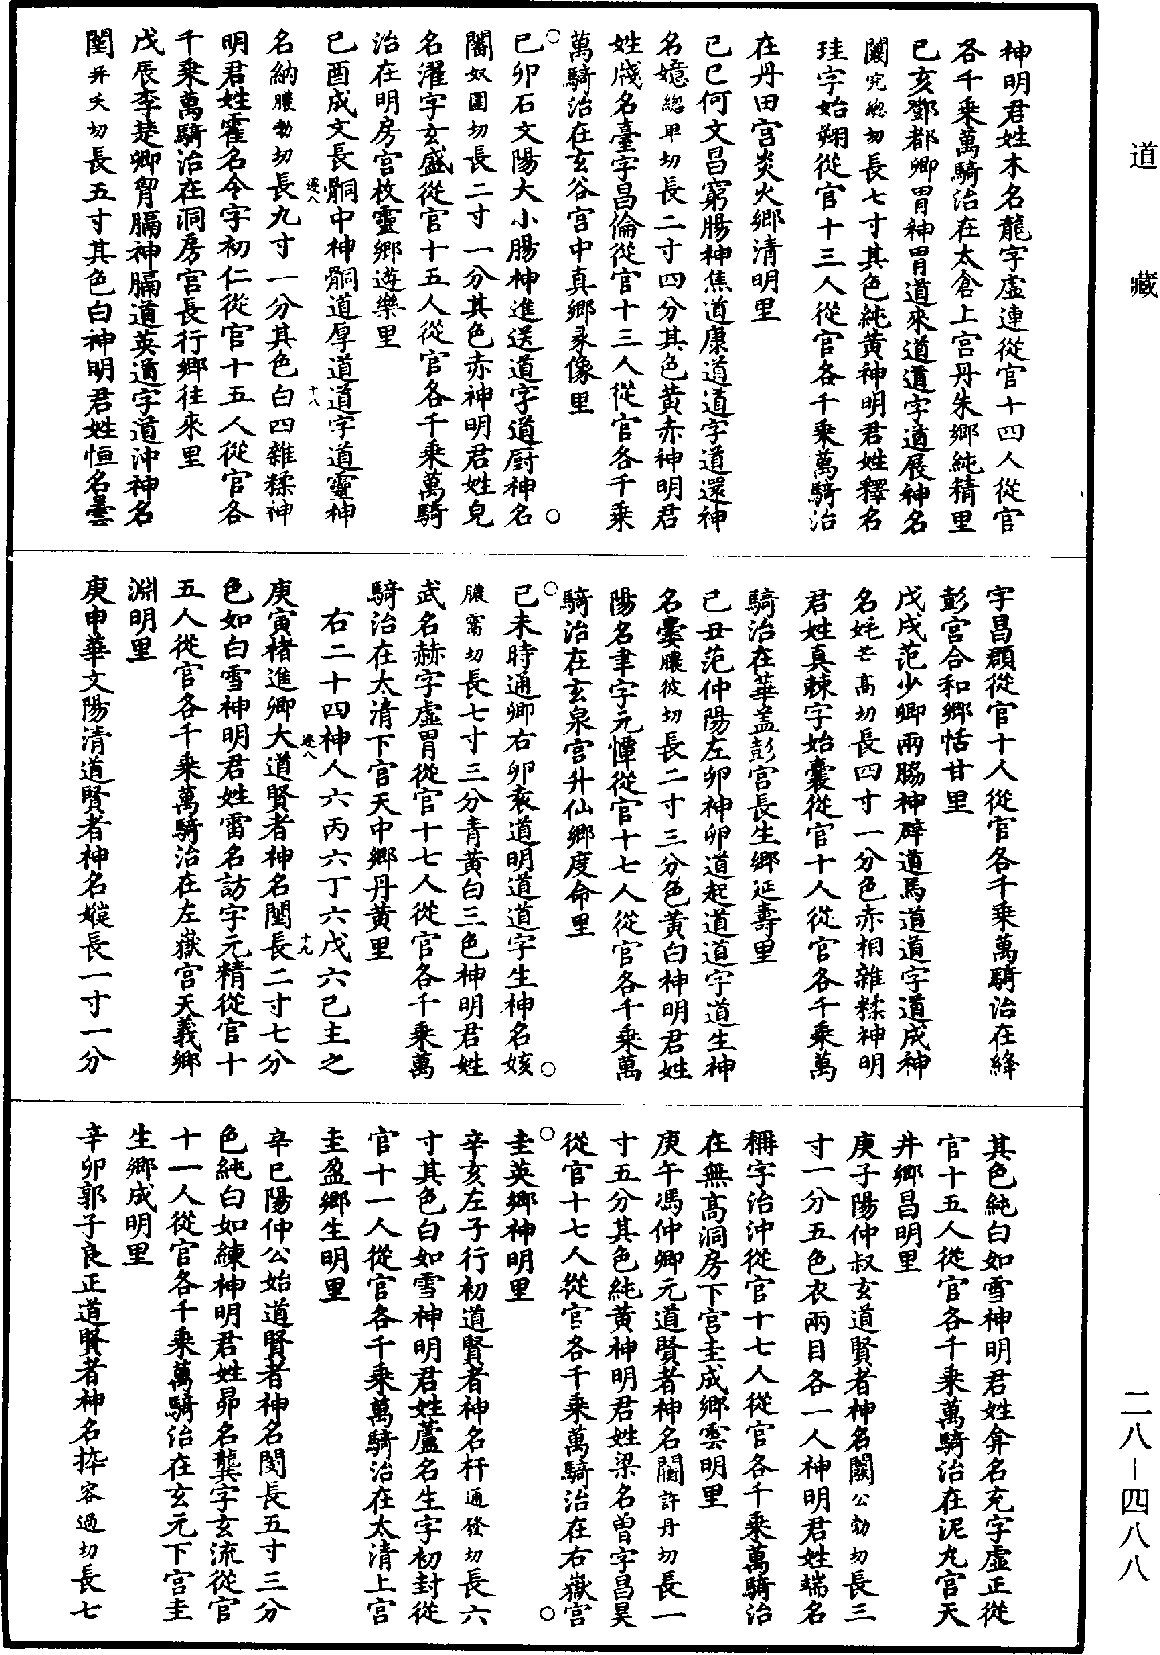 道藏
二八—四八八
神明君姓木名龍字虛連從官十四人從官
各千乘萬騎治在太倉上宮丹朱鄉純精里
己亥鄧都卿胃神胃道來道道字道展神名
闧完總切長七寸其色純黃神明君姓釋名
珪字始翔從官十三人從官各千乘萬騎治
在丹田宮炎火鄉清明里
己巳何文昌窮腸神焦道康道道字道還神
名嬑總甲切長二寸四分其色黃赤神明君
姓牋名臺字昌倫從官十三人從官各千乘
萬騎治在玄谷宮中真鄉录像里
己卯石文陽大小腸神進送道字道厨神名
闇奴圖切長二寸一分其色赤神明君姓皃
名濯字玄盛從官十五人從官各千乘萬騎
治在明房宮枚靈鄉遊樂里
己酉成文長胴中神胴道厚道道字道靈神
遂八 十八
名納膿勃切長九寸一分其色白四雜糅神
明君姓霍名令字初仁從官十五人從官各
千乘萬騎治在洞房宮長行鄉往來里
戊辰李楚卿胷膈神膈道英道字道沖神名
閨井夭切長五寸其色白神明君姓恒名曇
字昌覠從官十人從官各千乘萬騎治在絳
彭宮合和鄉恬甘里
戊戌范少卿兩脇神辟道馬道道字道成神
名㚪芒高切長四寸一分色赤相雜糅神明
君姓真棘字始囊從官十人從官各千乘萬
騎治在華盖彭宮長生鄉延壽里
己丑范仲陽左卯神卯道起道道字道生神
名㜝膿彼切長二寸三分色黃白神明君姓
陽名聿字元憚從官十七人從官各千乘萬
騎治在玄泉宮升仙鄉度命里
己未時通卿右卯衮道明道道字生神名姟
膿甯切長七寸三分青黃白三色神明君姓
武名赫字虛胃從官十七人從官各千乘萬
騎治在太清下官天中鄉丹黃里
右二十四神人六丙六丁六戊六己主之
遂八 十九
庚寅楮進卿大道賢者神名閨長二寸七分
色如白雪神明君姓雷名訪字元精從官十
五人從官各千乘萬騎治在左嶽宮天義鄉
淵明里
庚申華文陽清道賢者神名嬨長一寸一分
其色純白如雪神明君姓弇名充字虛正從
官十五人從官各千乘萬騎治在泥丸宮天
井鄉昌明里
庚子陽仲叔玄道賢者神名闕公勃切長三
寸一分五色衣兩目各一人神明君姓端名
稱字治沖從官十七人從官各千乘萬騎治
在無高洞房下宮圭成鄉雲明里
庚午馮仲卿元道賢者神名闧許丹切長一
寸五分其色純黃神明君姓梁名曾字昌昊
從官十七人從官各千乘萬騎治在右嶽宮
圭英鄉神明里
辛亥左子行初道賢者神名杆通發切長六
寸其色白如雪神明君姓蘆名生字初封從
官十一人從官各千乘萬騎治在太清上宮
圭盈鄉生明里
辛巳陽仲公始道賢者神名閔長五寸三分
色純白如練神明君姓昴名龔字玄流從官
十一人從官各千乘萬騎治在玄元下宮圭
生鄉成明里
辛卯郭子良正道賢者神名捽容過切長七